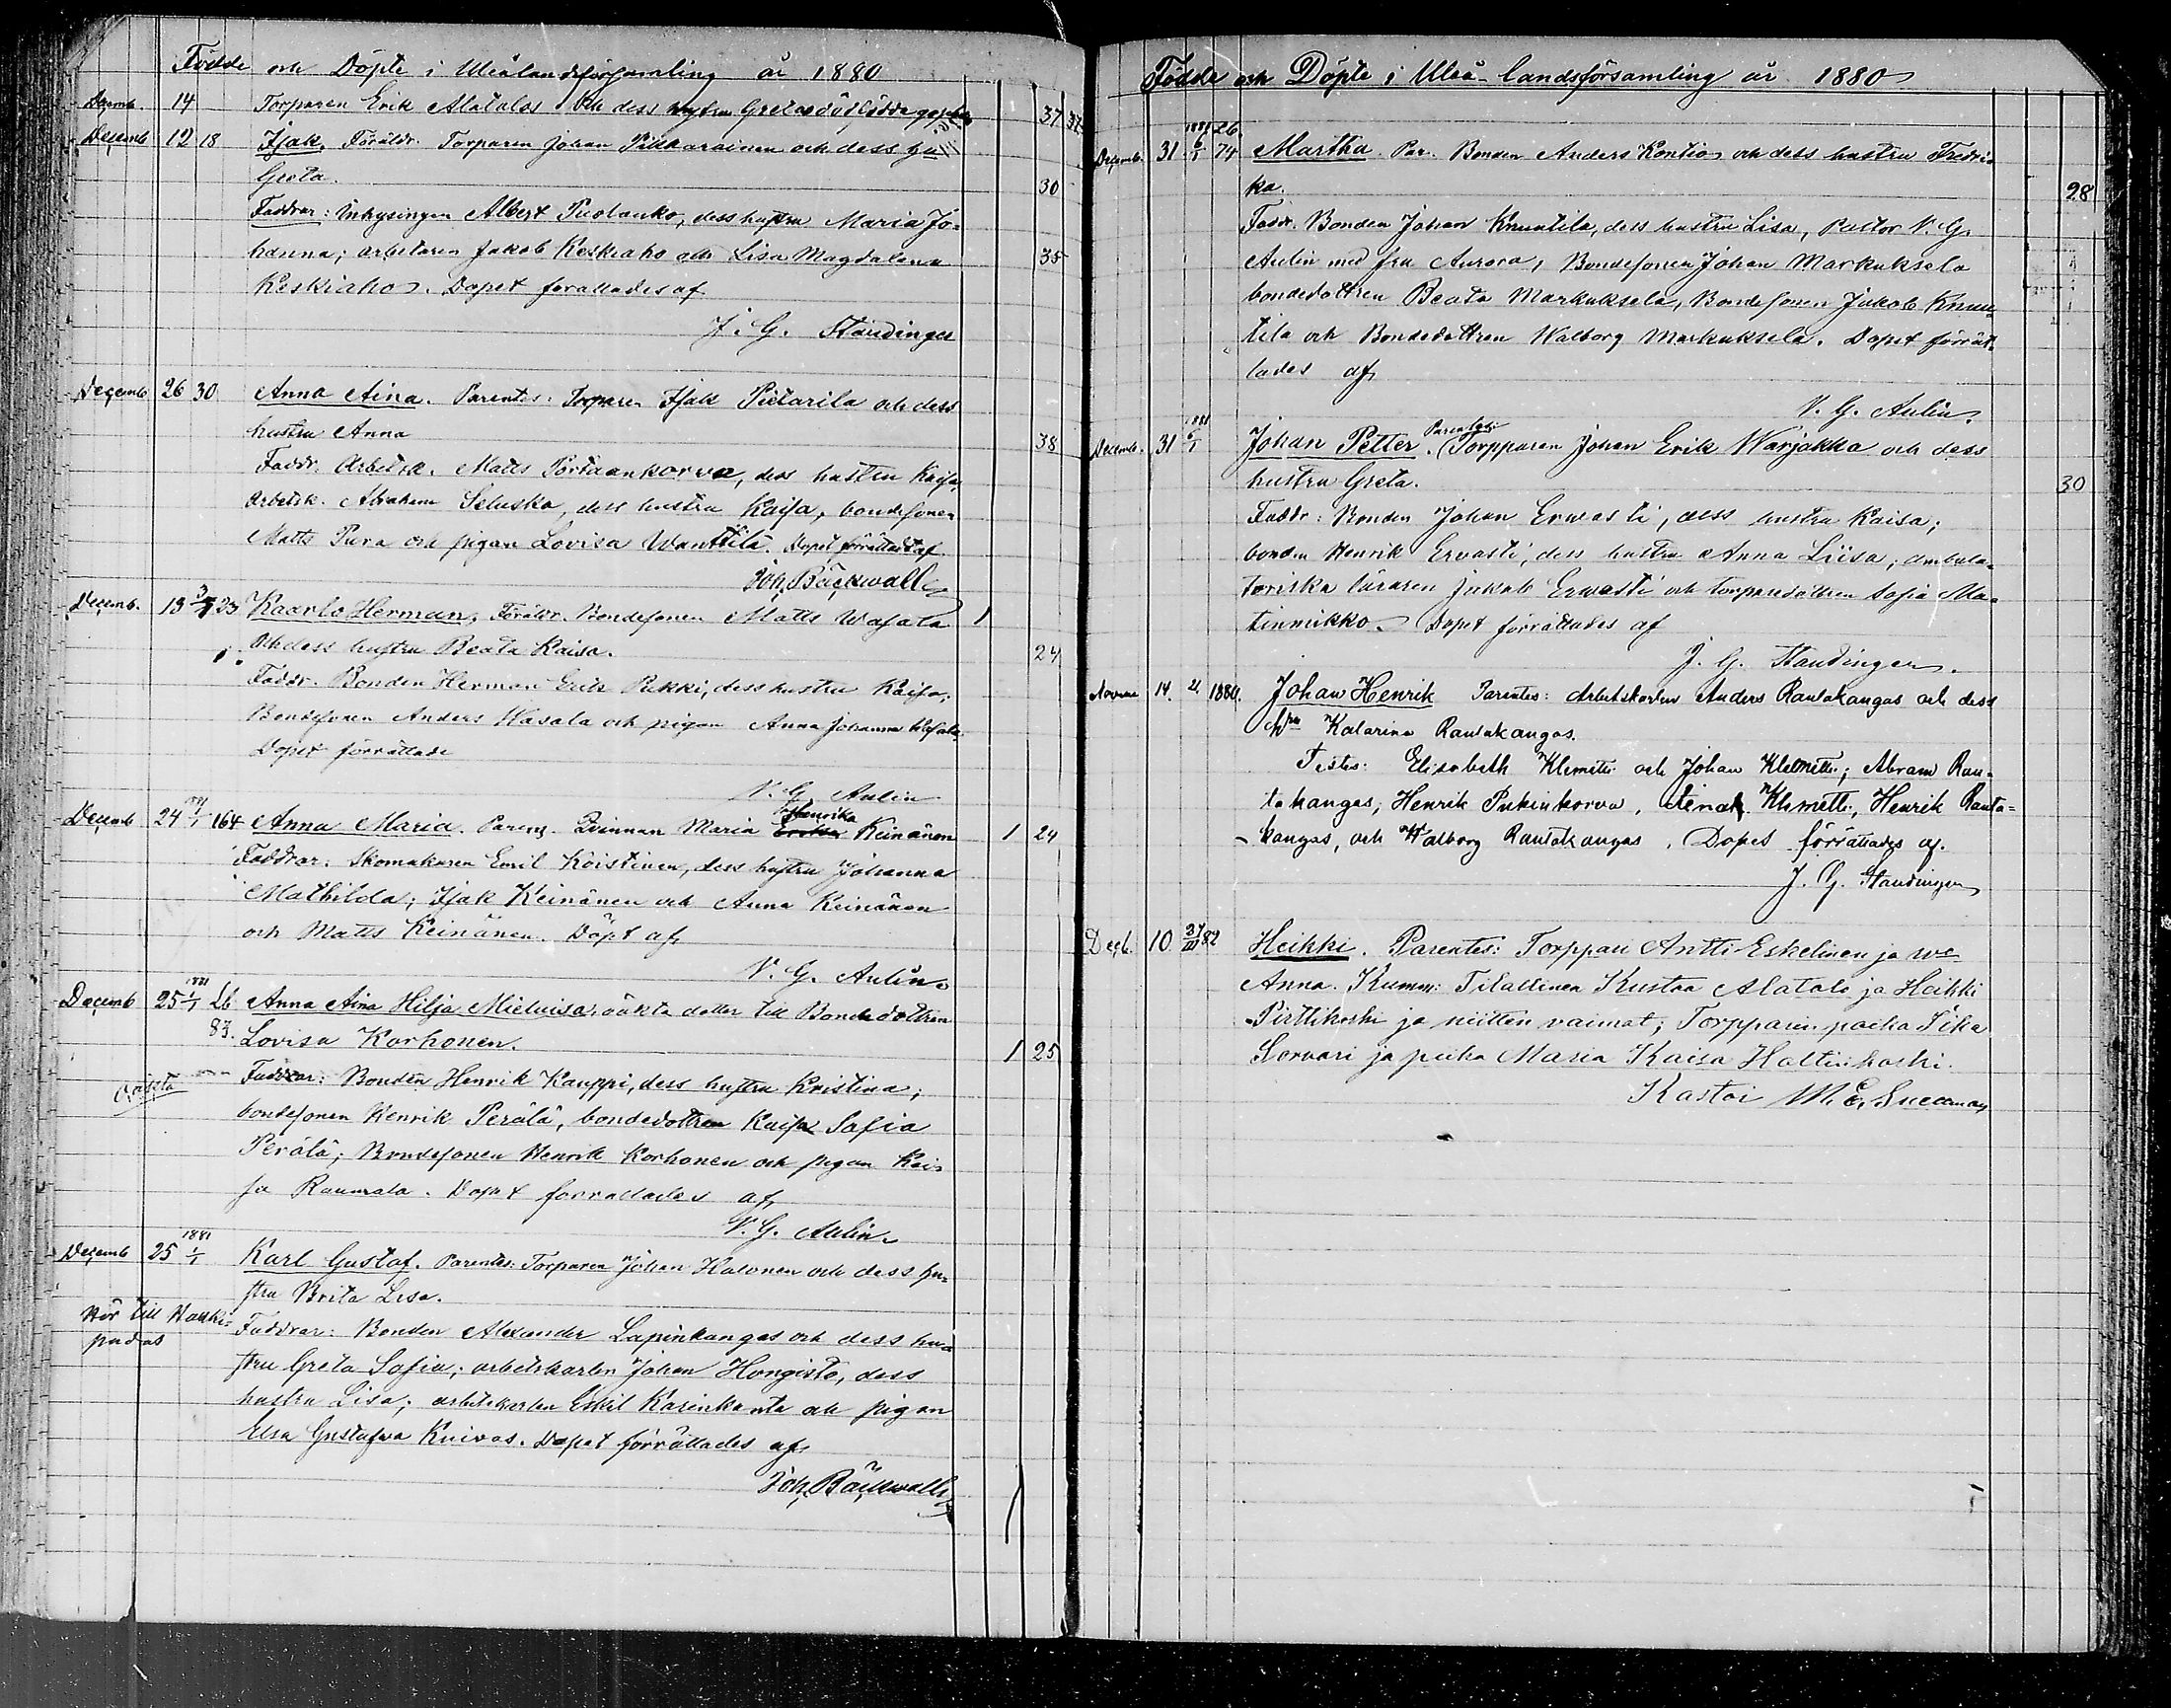 Födde och Döpte i Uleålandsförsamling år 1880
Decemb. 14 Torparen Erik Alatalos och dess hustru Gretas dödfödde 37
Decemb 12 18 Isak. Föräldr. Torparen Johan Pikkarainen och dess hu
Greta. 30
Faddrar: Inhysingen Albert Puolanko, dess hustru Maria Jo=
hanna; arbetaren Jakob Keskiaho och Lisa Magdalena 35
Keskiaho. Dopet förättades af
J. G. Standinger
Decemb 26 30 Anna Aina. Parentes. Torparen Isak Pietarila och dess
hustru Anna 38
Faddr. Arbetsk. Matts Portaankorva, dess hustru Kaisa,
arbetsk. Abraham Seluska, dess hustru Kaisa, bondesonen
Matts Pura och pigan Lovisa Wänttilä. Dopet förrättadt af
Joh. Bäckwall
Decemb. 13 3/1 23 Kaarlo Herman, Föräldr. Bondesonen Matts Wasala 1
och dess hustru Beata Kaisa. 24
Faddr. Bonden Herman Erik Pukki, dess hustru Kaisa,
Bondesonen Anders Wasala och pigan Anna Johanna Wasala,
Dopet förrättade
V. G. Aulin
Decemb 24 1881 1/1 164 Anna Maria. Parens. Qvinnan Maria Henrika Keinänen 1 24
Faddrar: Skomakaren Emil Koistinen, dess hustru Johanna
Mathilda; Isak Keinänen och Anna Keinänen
och Matts Keinänen. Döpt af
V. G. Aulin.
Decemb 25 1881 1/1 26 Anna Aina Hilja Mieluisa, oäkta dotter till Bondedottren
83. Lovisa Korhonen. 1 25
Faddrar: Bonden Henrik Kauppi, dess hustru Kristina;
bondesonen Henrik Perälä, bondedottren Kaisa Safia
Perälä; Bondesonen Henrik Korhonen och pigan Kai=
sa Raumala. Dopet förrättades af
V. G. Aulin.
Decemb 25 1881 1/1 Karl Gustaf. Parentes: Torparen Johan Halonen och dess hu=
stru Brita Lisa.
Hör till Hauki=
pudas
Faddrar: Bonden Alexander Lapinkangas och dess hu=
stru Greta Sofia; arbetskarlen Johan Hongisto, dess
hustru Lisa; arbetskarlen Eskil Karinkanta och pigan
Elsa Gustafva Kuivas. Dopet förrättades af
Joh. Bäckwall
Födde och Döpte i Uleå-landsförsamling år 1880
Decemb. 31 1881 6/1 26. 74 Martha. Par. Bonden Anders Kontio och dess hustru Fredri=
ka. 28
Faddr. Bonden Johan Knuutila, dess hustru Lisa, Pastor V. G.
Aulin med fru Aurora, Bondesonen Johan Markuksela
bondedottren Beata Markuksela, Bondesonen Jakob Knuu
tila och Bondedottren Walborg Markuksela. Dopet förrät=
tades af
V. G. Aulin.
Decemb. 31 1881 6/1 Johan Petter. Parentes: Torpparen Johan Erik Warjakka och dess
hustru Greta. 30
Faddr: Bonden Johan Erwasti, dess hustru Kaisa;
bonden Henrik Ervasti, dess hustru Anna Liisa; ambula=
toriska läraren Jakob Erwasti och torparedottren Sofia Ma=
tinmikko. Dopet förrättades af
J. G. Standinger.
Novem 14. 21. 1880. Johan Henrik Parentes: Arbetskarlen Anders Rautakangas och dess
hru Katarina Rautakangas.
Testes: Elisabeth Klemetti och Johan Klemetti; Abram Rau=
takangas, Henrik Pukinkorva, Klemetti, Henrik Rauta=
kangas, och Walborg Rautakangas. Dopet förrättades af.
J. G. Standinger
Decb. 10 31/III 82 Heikki. Parentes: Torppari Antti Eskelinen ja wo
Anna. Kumm: Tilallinen Kustaa Alatalo ja Heikki
Pirttikoski ja niitten vaimot; Torpparin poika
Sorvari ja piika Maria Kaisa Holtinkoski.
Kastoi M. E. Snellman